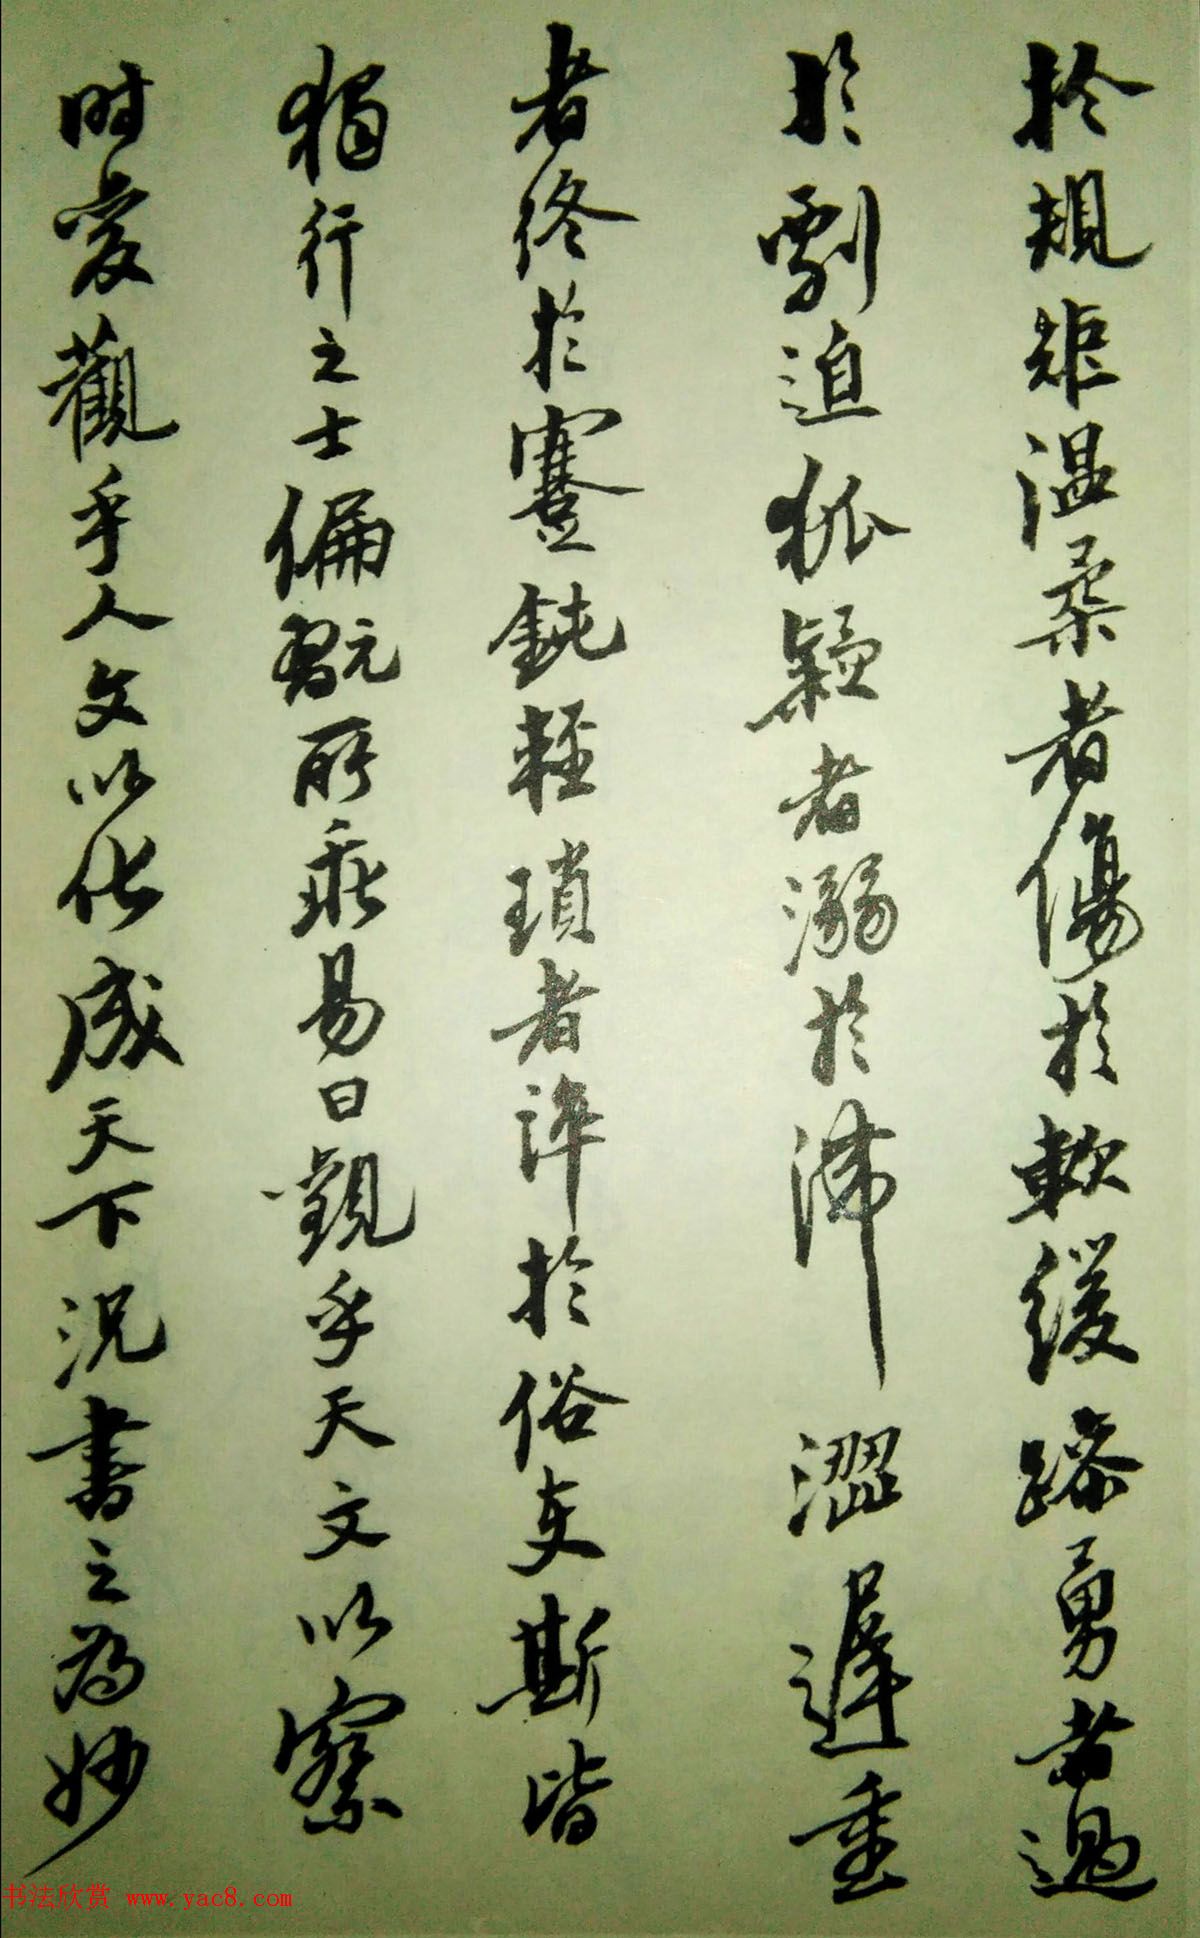 於規矩温柔者傷於軟緩躁勇者過
於剽迫狐疑者溺於滯澀遲重
者終於蹇鈍輕瑣者淬於俗吏斯皆
獨行之士偏翫所乖易曰觀乎天文以察
時變觀乎人文以化成天下況書之為妙
书法欣赏 www.yac8.com